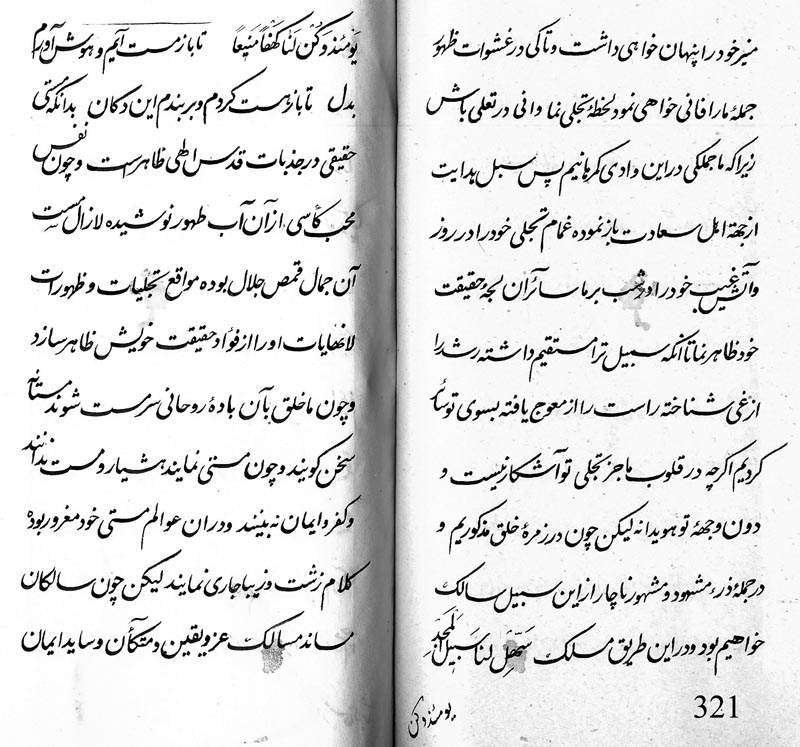 منیر خود را پنهان خواهی داشت و تا کی در غشوات ظهور
جملهٔ ما را فانی خواهی نمود لحظهٔ تجلی نما و انی در تعلی باش
زیرا که ما جملکی در این وادی کمرهانیم پس سبل هدایت
از جهة اهل سعادت باز نموده غمام تجلی خود را در روز
و آتش غیب خود را در شب بر ما سائران لجهٔ حقیقت
خود ظاهر نما تا انکه سبیل ترا مستقیم داشته رشد را
از غی شناخته راست را از معوج یافته بسوی تو سائر
کردیم اکرچه در قلوب ما جز تجلی تو آشکار نیست و
دون وجههٔ تو هویدا نه لیکن چون در زمرهٔ خلق مذکوریم و
در جملهٔ ذرء مشهود و مشهور ناچار از این سبیل سالک
خواهیم بود و در این طریق مسلک سَهِّل لنا سَبیلَ المَجْدِ
یومئذ وکن
321
یومئذ وکُن لَنا کَهفاً مَنیعاً تا باز مست آئیم و هوش آوریم
بدل تا باز هست کردم و بربندم این دکان بدانکه مستی
حقیقی در جذبات قدس الهی ظاهر است و چون نفس
محب کأسی از آن آب طهور نوشیده لازال مست
آن جمال قمص جلال بوده مواقع تجلیات و ظهورات
لانهایات او را از فؤاد حقیقت خویش ظاهر سازد
و چون ما خلق بآن بادهٔ روحانی سرمست شوند مستانه
سخن کویند و چون مستی نمایند هشیار و مست ندانند
و کفر و ایمان نه بینند و در ان عوالم مستی خود مغرور بوده
کلام زشت و زیبا جاری نمایند لیکن چون سالکان
ماند مسالک عز و یقین و متکآن وساید ایمان